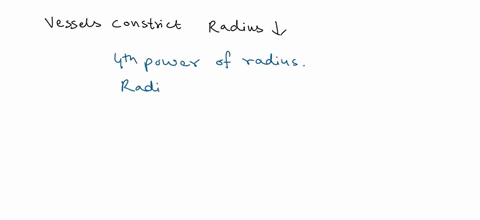 Vessels constrict Radius ↓
4th power of radius.
Radi